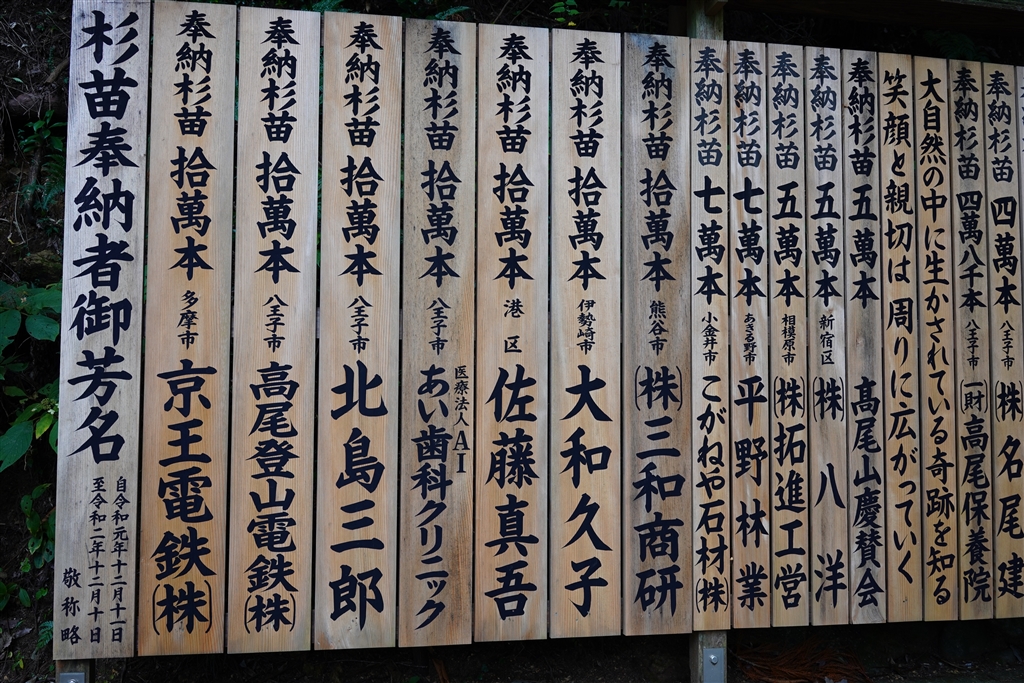 杉苗奉納者御芳名
自令和元年十二月十一日
至令和二年十二月十日
敬称略
奉納杉苗 拾萬本 多摩市 京王電鉄(株)
奉納杉苗 拾萬本 八王子市 高尾登山電鉄(株)
奉納杉苗 拾萬本 八王子市 北島三郎
奉納杉苗 拾萬本 八王子市 医療法人AI あい歯科クリニック
奉納杉苗 拾萬本 港区 佐藤真吾
奉納杉苗 拾萬本 伊勢崎市 大和久子
奉納杉苗 拾萬本 熊谷市 (株)三和商研
奉納杉苗 七萬本 小金井市 こがねや石材(株)
奉納杉苗 七萬本 あきる野市 平野林業
奉納杉苗 五萬本 相模原市 (株)拓進工営
奉納杉苗 五萬本 新宿区 (株)八洋
奉納杉苗 五萬本 髙尾山慶賛会
笑顔と親切は周りに広がっていく
大自然の中に生かされている奇跡を知る
奉納杉苗 四萬八千本 八王子市 (一財)高尾保養院
奉納杉苗 四萬本 八王子市 (株)名尾建